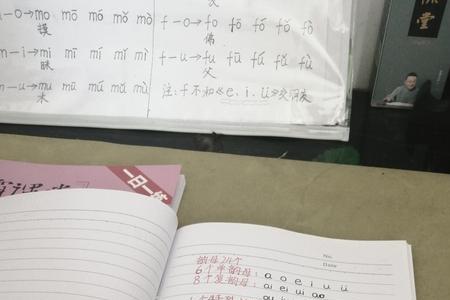 -o→mo mō mó mǒ mò
摸
m-i→mi mī mí mǐ mì
眯
m-u→mu mū mú mǔ mù
木
f-o→fo fō fó fǒ fò
佛
f-u→fu fū fú fǔ fù
父
注:f不和《e.i.ü》交朋友
堂
一日一练
No.
Date
韵母24个
6个单韵母: a o e i u ü
8个复韵母: ai ei ui ao